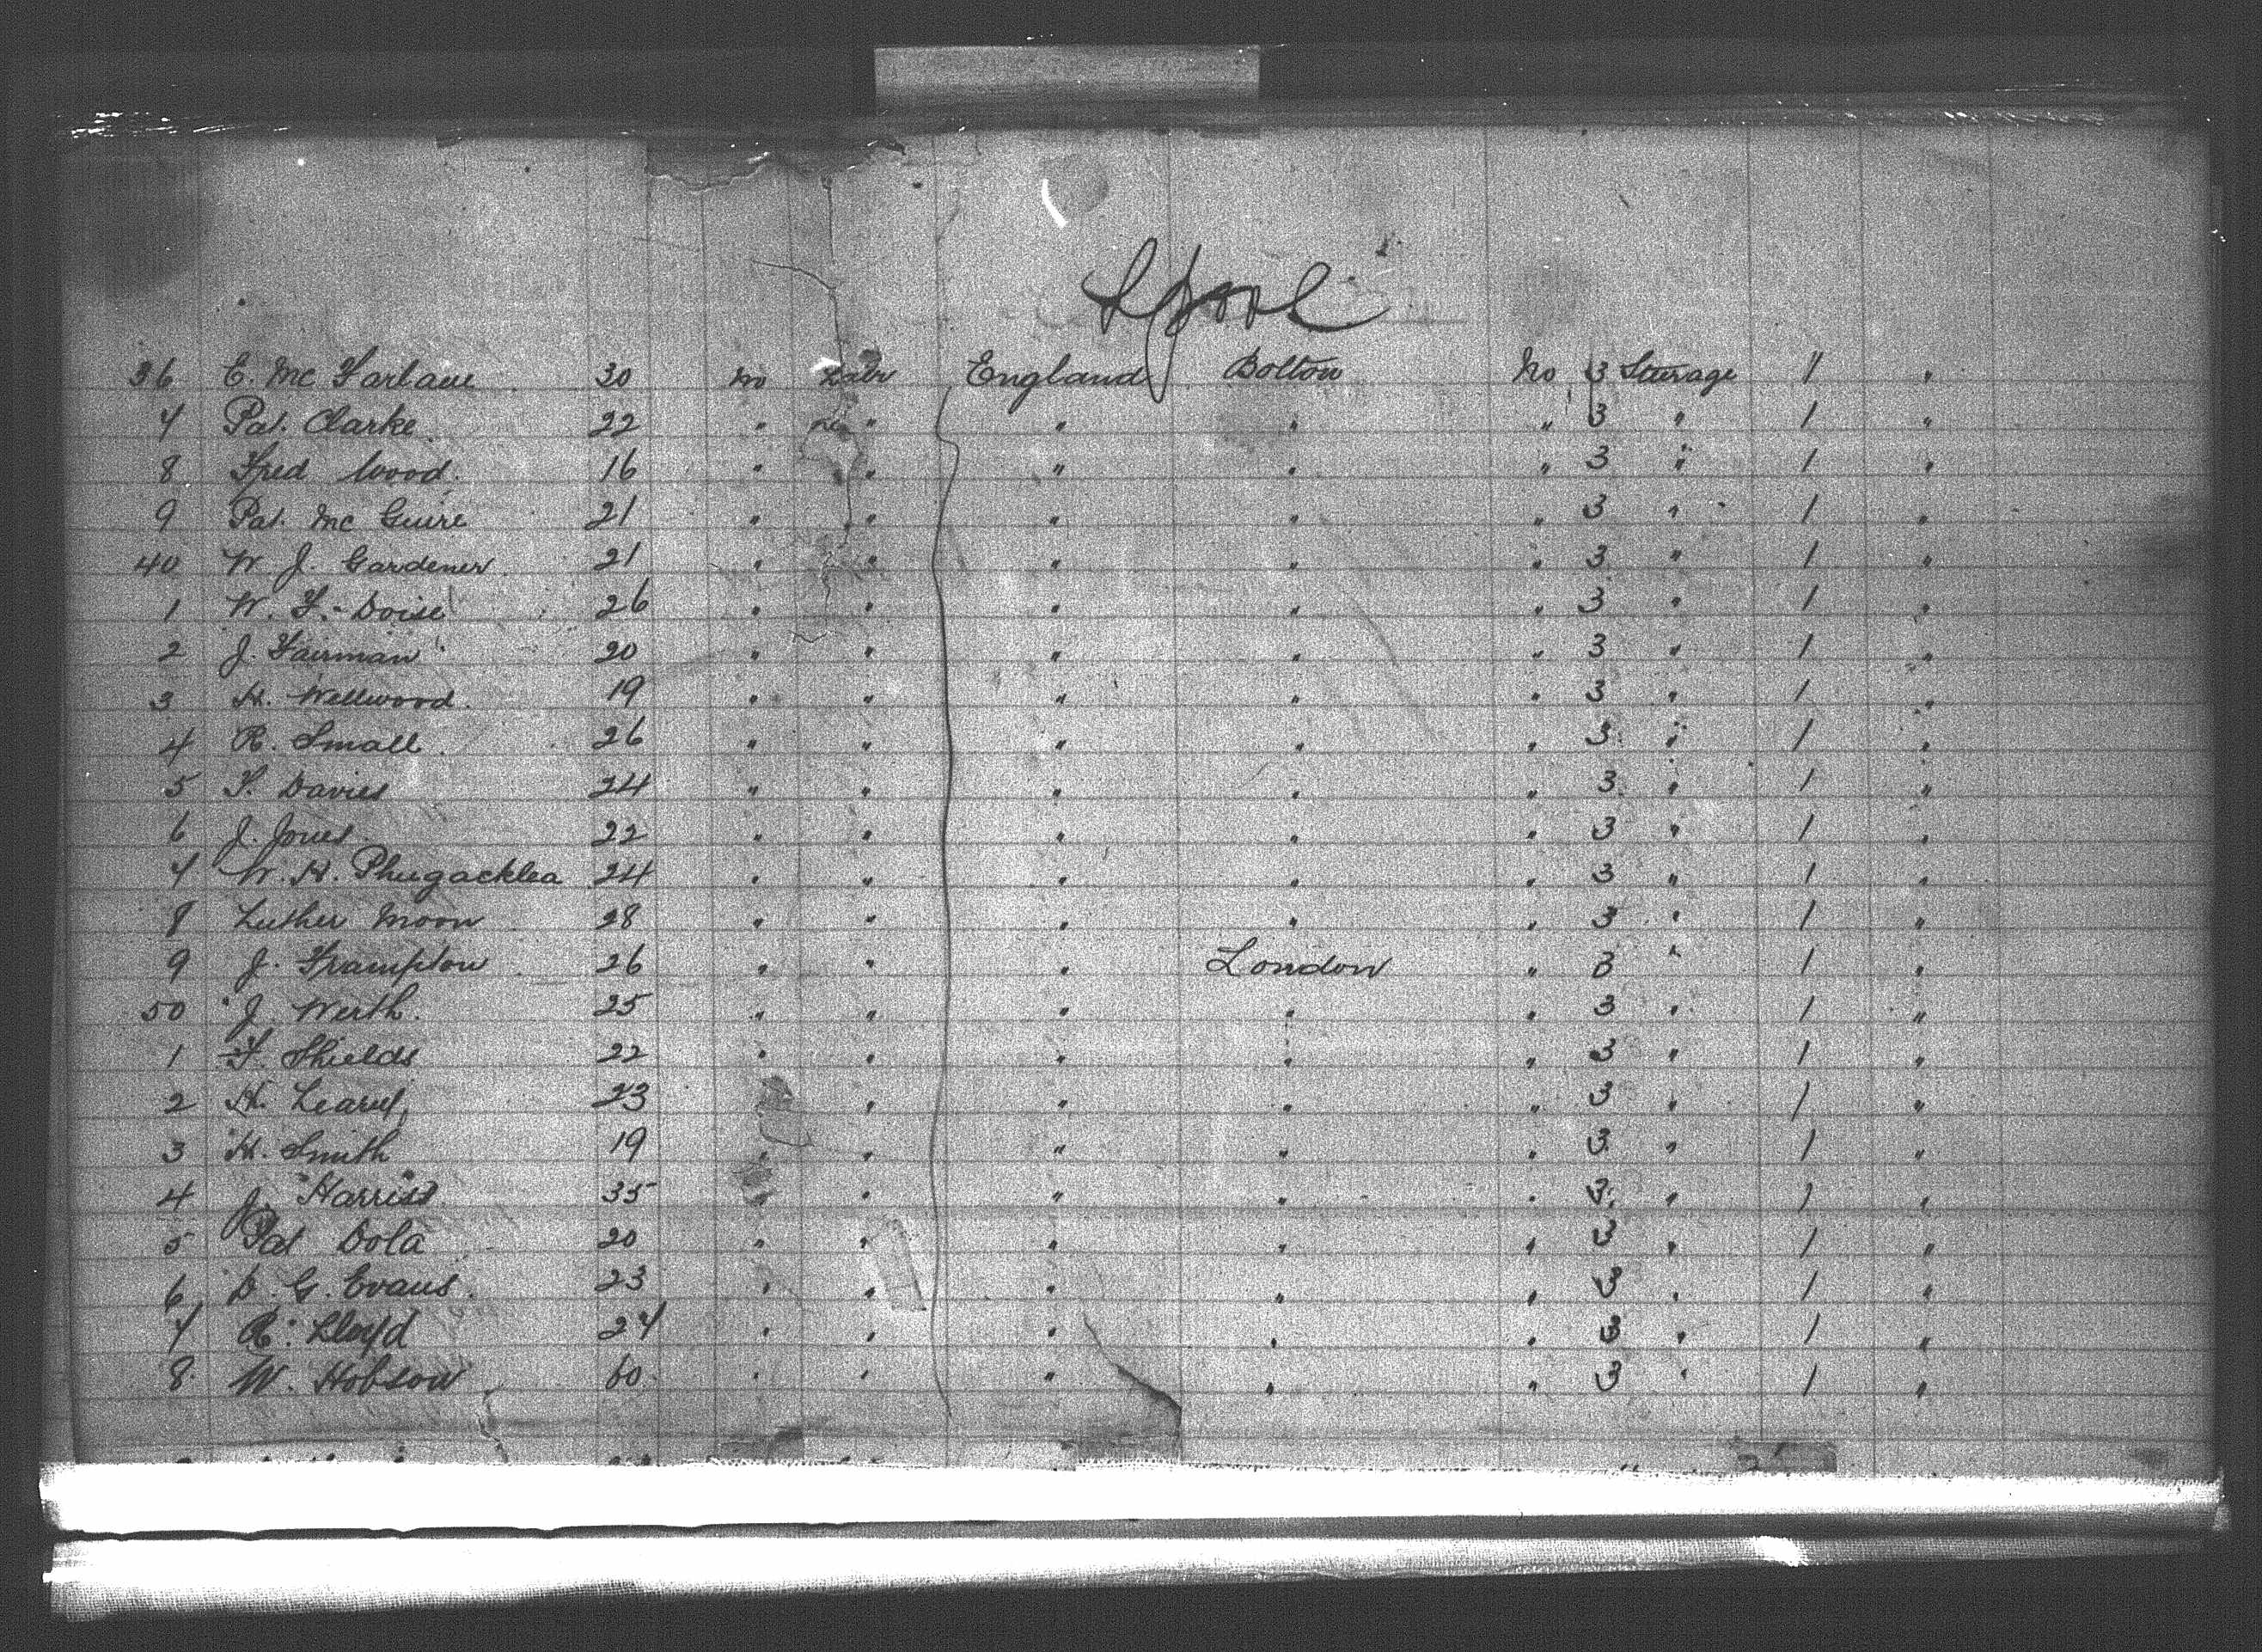 Lpool
36 E. Mc Farlane 30 no Labr England Bolton No 3 Steerage 1 "
7 Pat. Clarke 22 " " " " " 3 " 1 "
8 Fred Wood 16 " " " " " 3 " 1 "
9 Pat. Mc Guire 21 " " " " " 3 " 1 "
40 W. J. Gardener 21 " " " " " 3 " 1 "
1 W. F. Doise 26 " " " " " 3 " 1 "
2 J. Fairman 20 " " " " " 3 " 1 "
3 H. Wellwood 19 " " " " " 3 " 1 "
4 R. Small 26 " " " " " 3 " 1 "
5 T. Davies 24 " " " " " 3 " 1 "
6 J. Jones 22 " " " " " 3 " 1 "
7 W. H. 24 " " " " " 3 " 1 "
8 Luther Moon 28 " " " " " 3 " 1 "
9 J. Frampton 26 " " " London " 3 " 1 "
50 J. Werth 25 " " " " " 3 " 1 "
1 F. Shields 22 " " " " " 3 " 1 "
2 H. 23 " " " " 3 " 1 "
3 H. Smith 19 " " " " " 3 " 1 "
4 J. Harriss 35 " " " " " 3 " 1 "
5 Pat Dola 20 " " " " " 3 " 1 "
6 D. G. Evans 23 " " " " " 3 " 1 "
7 R. Lloyd 27 " " " " " 3 " 1 "
8 W. Hobson 60 " " " " " 3 " 1 "